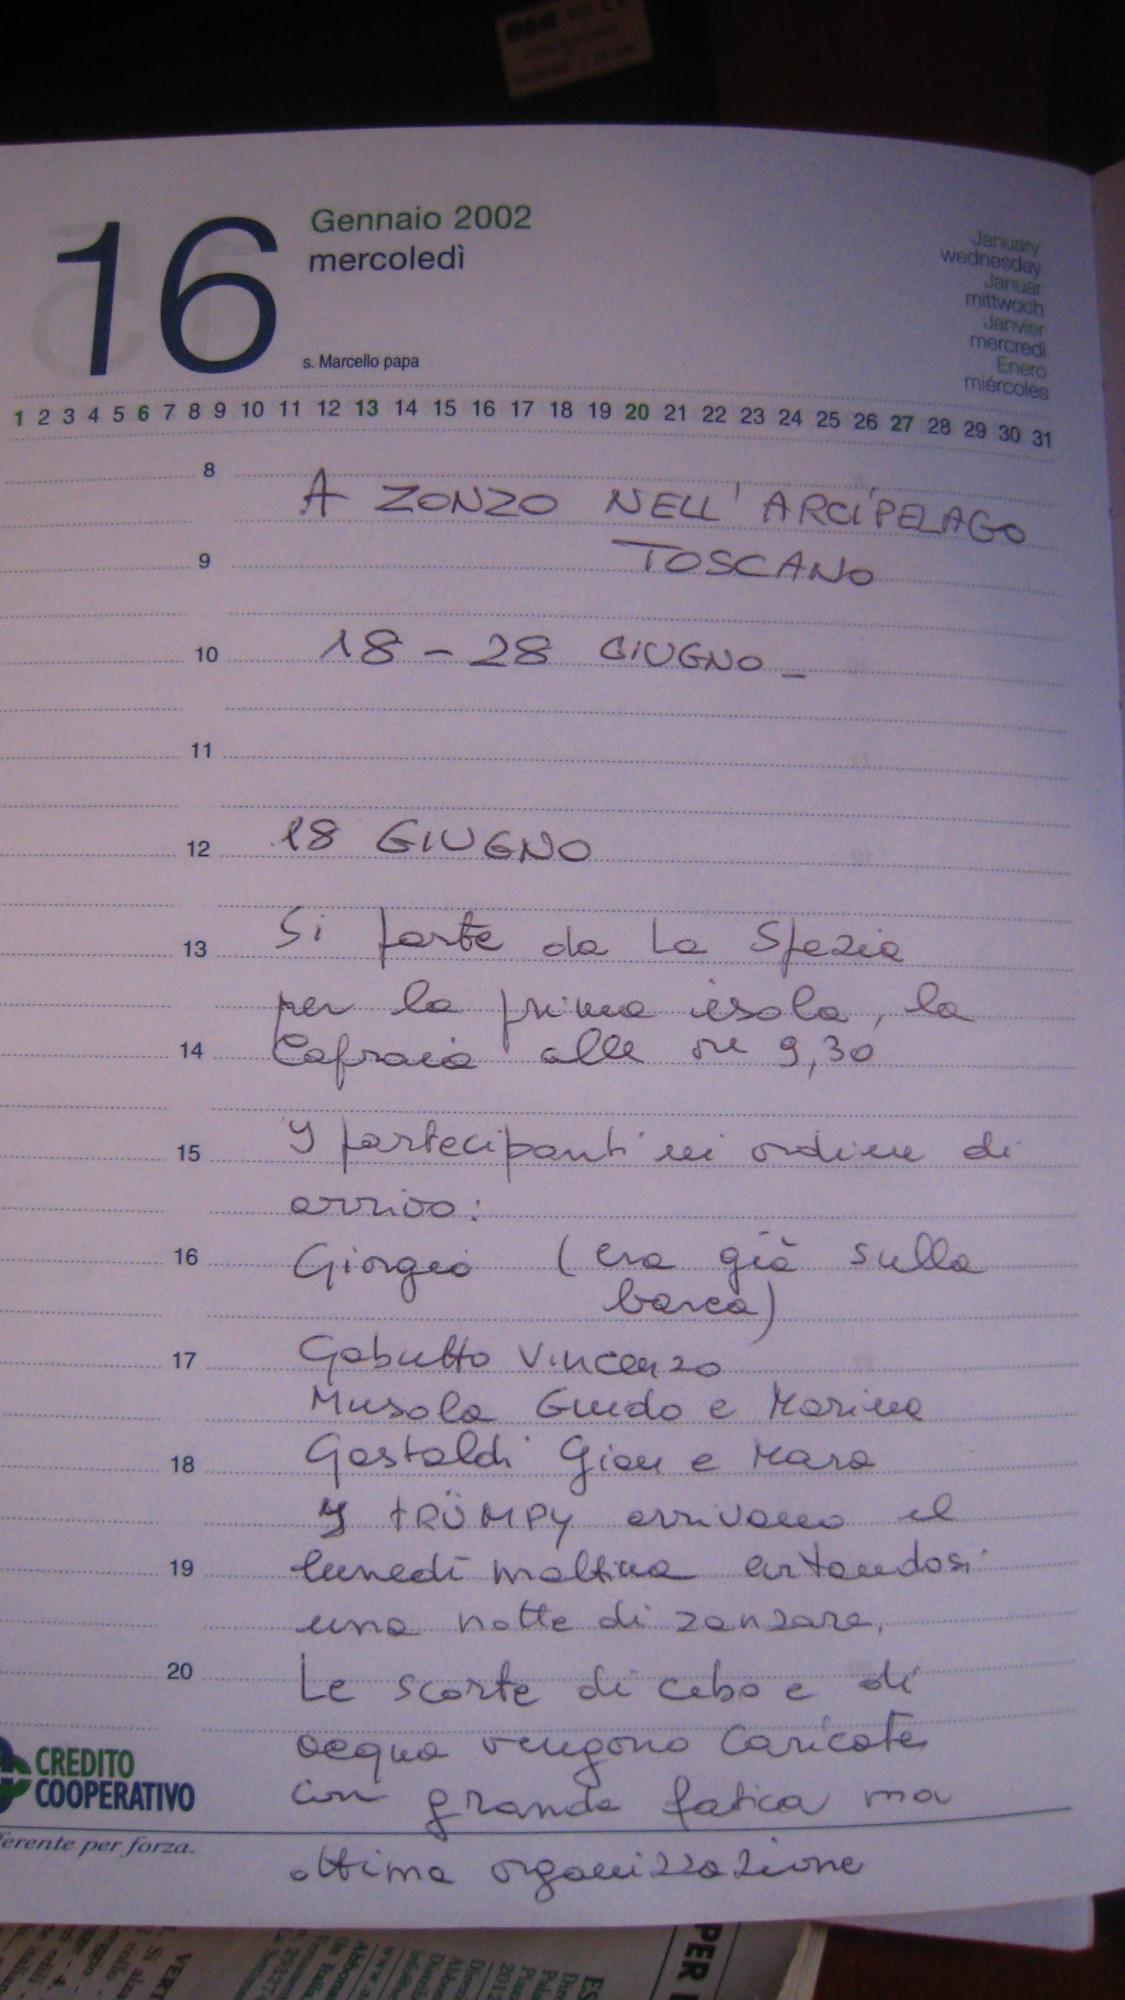 16
Gennaio 2002
mercoledì
s. Marcello papa
January
wednesday
Januar
mittwoch
Janvier
mercredi
Enero
miércoles
1 2 3 4 5 6 7 8 9 10 11 12 13 14 15 16 17 18 19 20 21 22 23 24 25 26 27 28 29 30 31
8
A ZONZO NELL'ARCIPELAGO
9
TOSCANO
10
18 - 28 GIUGNO
11
12
18 GIUGNO
13
Si parte da La Spezia
per la prima isola, la
14
Capraia alle ore 9,30
15
I partecipanti in ordine di
arrivo:
16
Giorgio (era già sulla
barca)
17
Gabutto Vincenzo
Musola Guido e Marina
18
Gastaldi Gian e Mara
I TRÜMPY arrivano il
19
lunedì mattina evitandosi
una notte di zanzare.
20
Le scorte di cibo e di
acqua vengono caricate
con grande fatica ma
ottima organizzazione
CREDITO
COOPERATIVO
ferente per forza.
PER